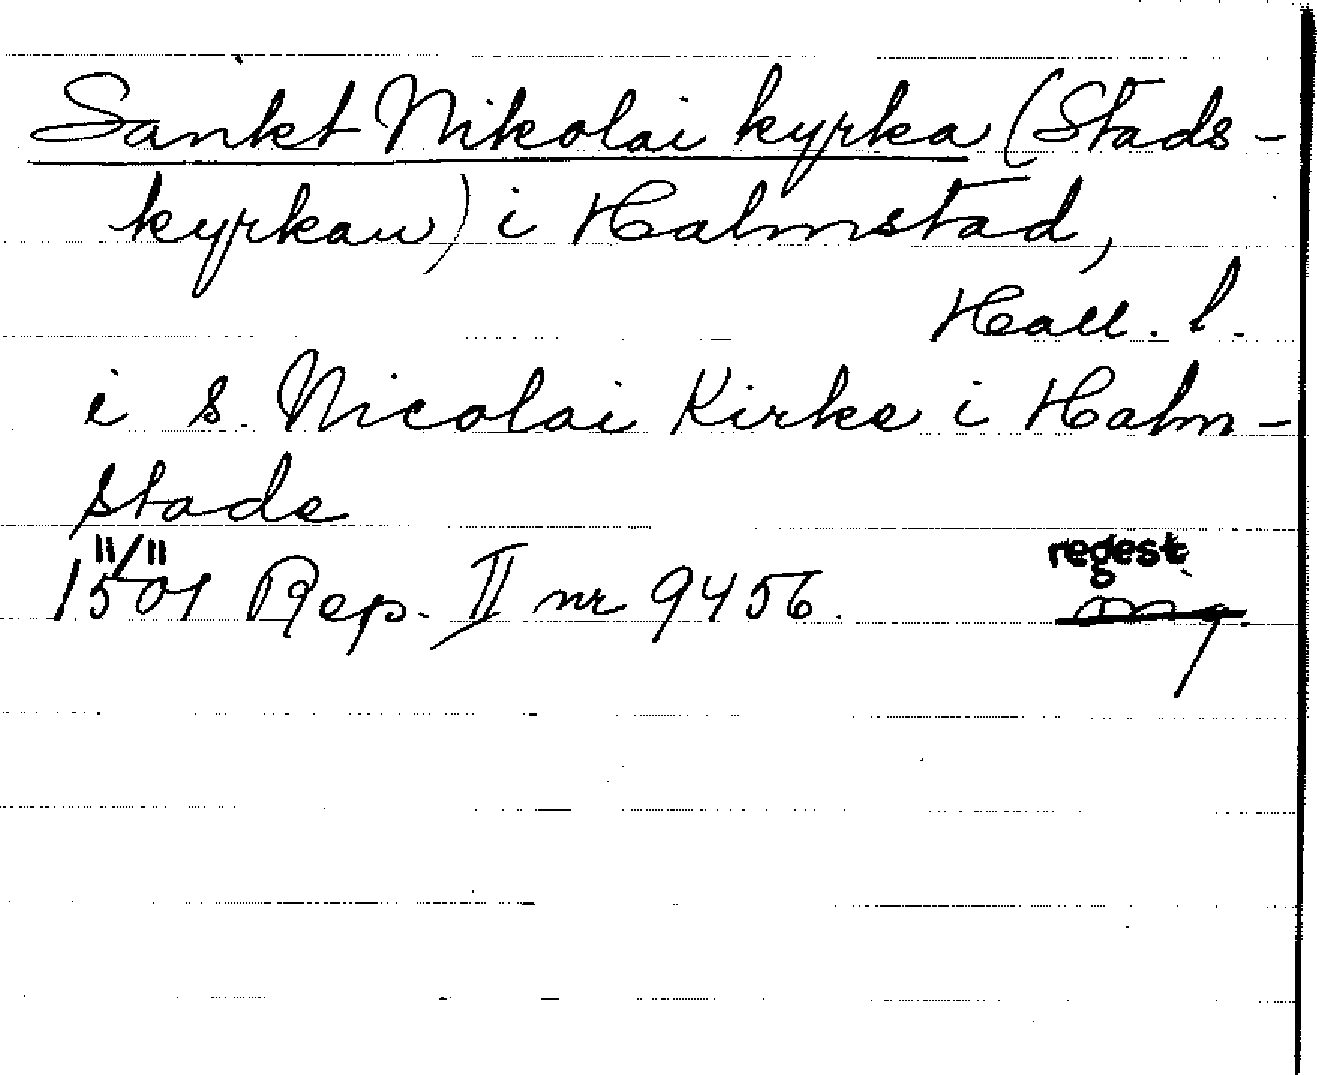 Sankt Nikolai kyrka (Stads-
kyrkan) i Halmstad,
Hall. l.
i S. Nicolai Kirke i Halm-
stade
11/11
1501 Rep. II nr 9456.
regest